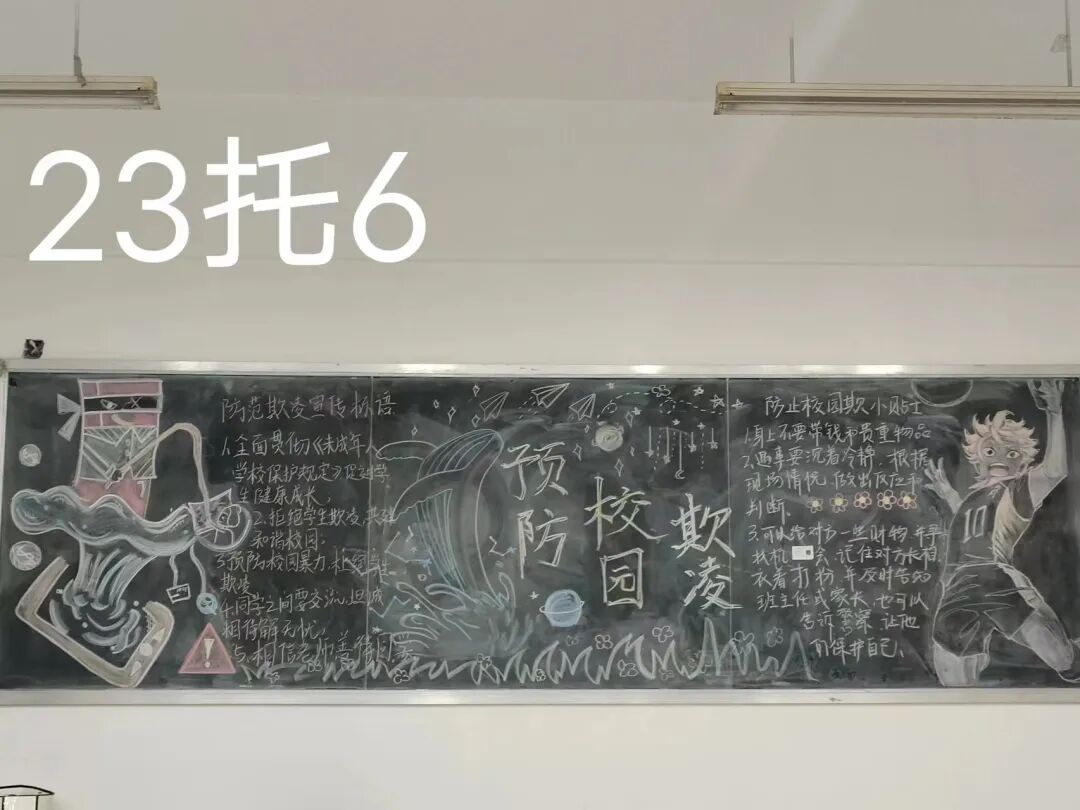 23托6
防范欺凌宣传标语
1.全面贯彻《未成年人
学校保护规定》促进学
生健康成长;
2.拒绝学生欺凌,共建
和谐校园;
3.预防校园暴力,拒绝学生
欺凌
4.同学之间要交流,坦诚
相待解无忧,
5.相信老师善待同学
预防
校园
欺凌
防止校园欺小贴士
1.身上不要带钱和贵重物品
2.遇事要沉着冷静,根据
现场情况,做出反应和
判断.
3.可以给对方一些财物并寻
找机会,记住对方长相
衣着打扮,并及时告知
班主任或家长,也可以
告诉警察,让他
们保护自己、
10